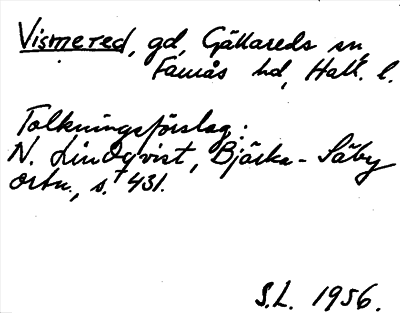 Vismered, gd, Gällareds sn,
Faurås hd, Hall. l.
Tolkningsförslag:
N. Lindqvist, Bjärka-Säby
ortn., s. 431.
S.L. 1956.